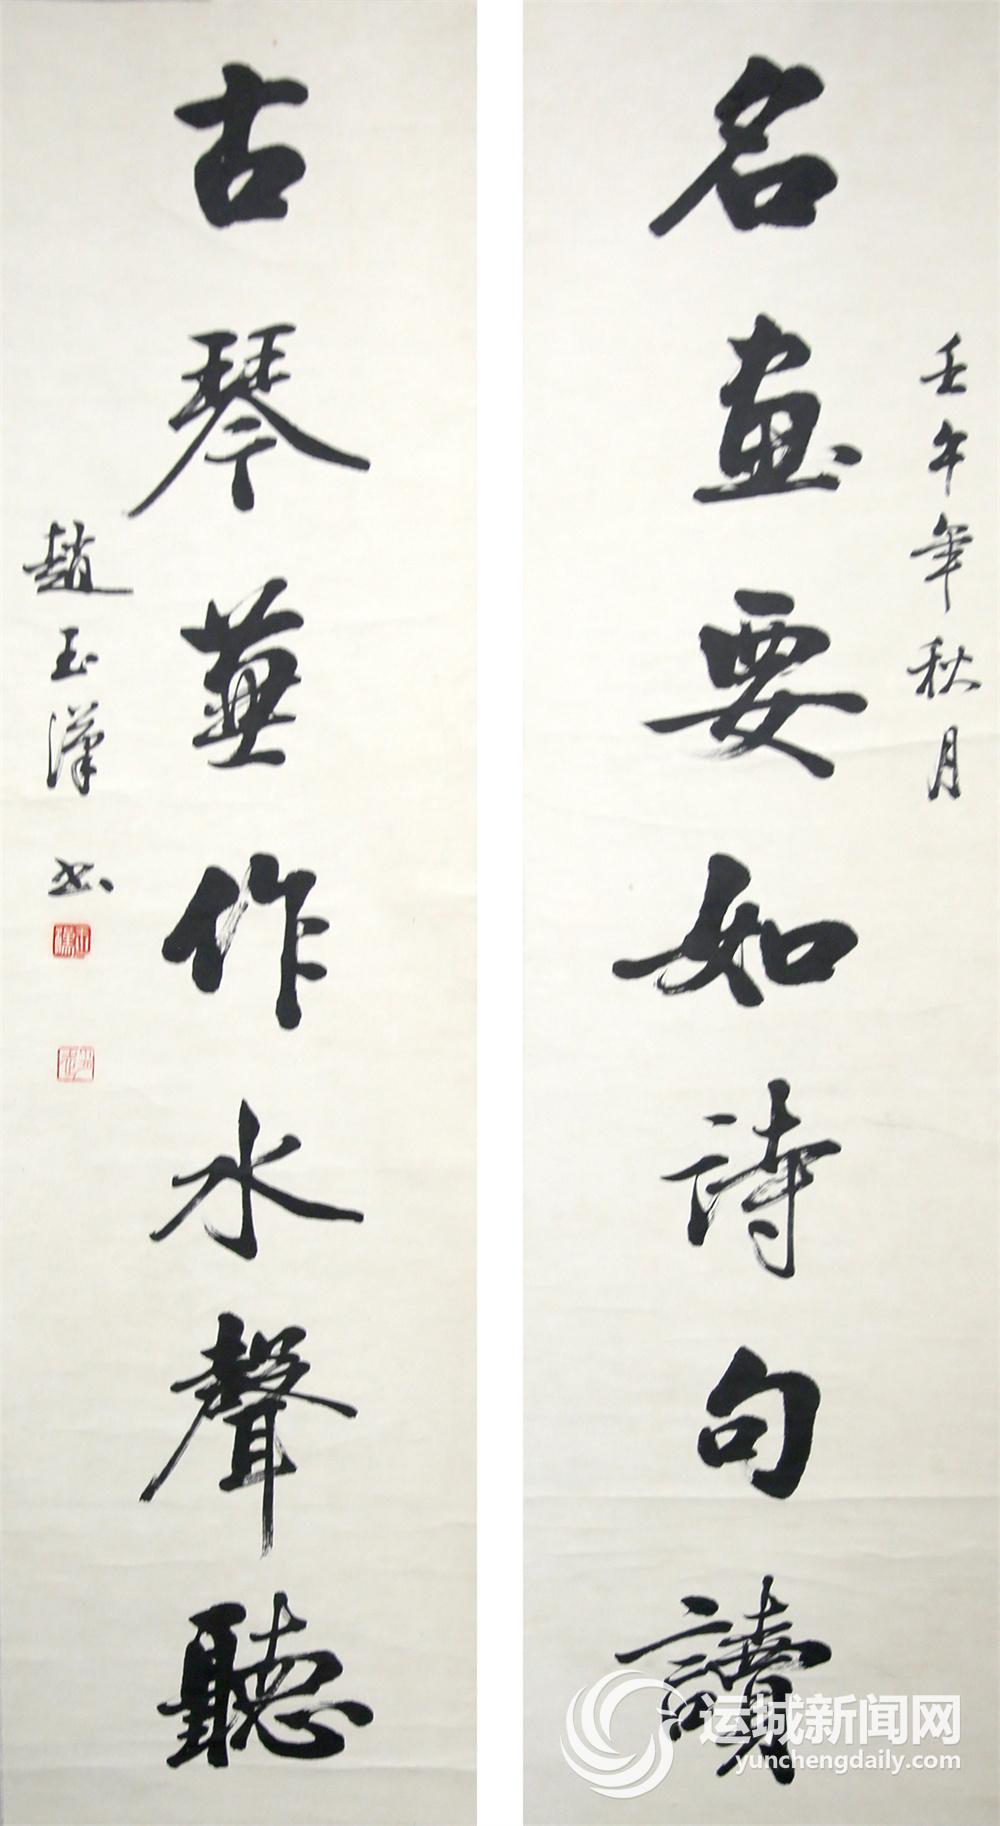 壬午年秋月
名畫要如詩句讀
古琴兼作水聲聽
趙玉漢書
运城新闻网
yunchengdaily.com